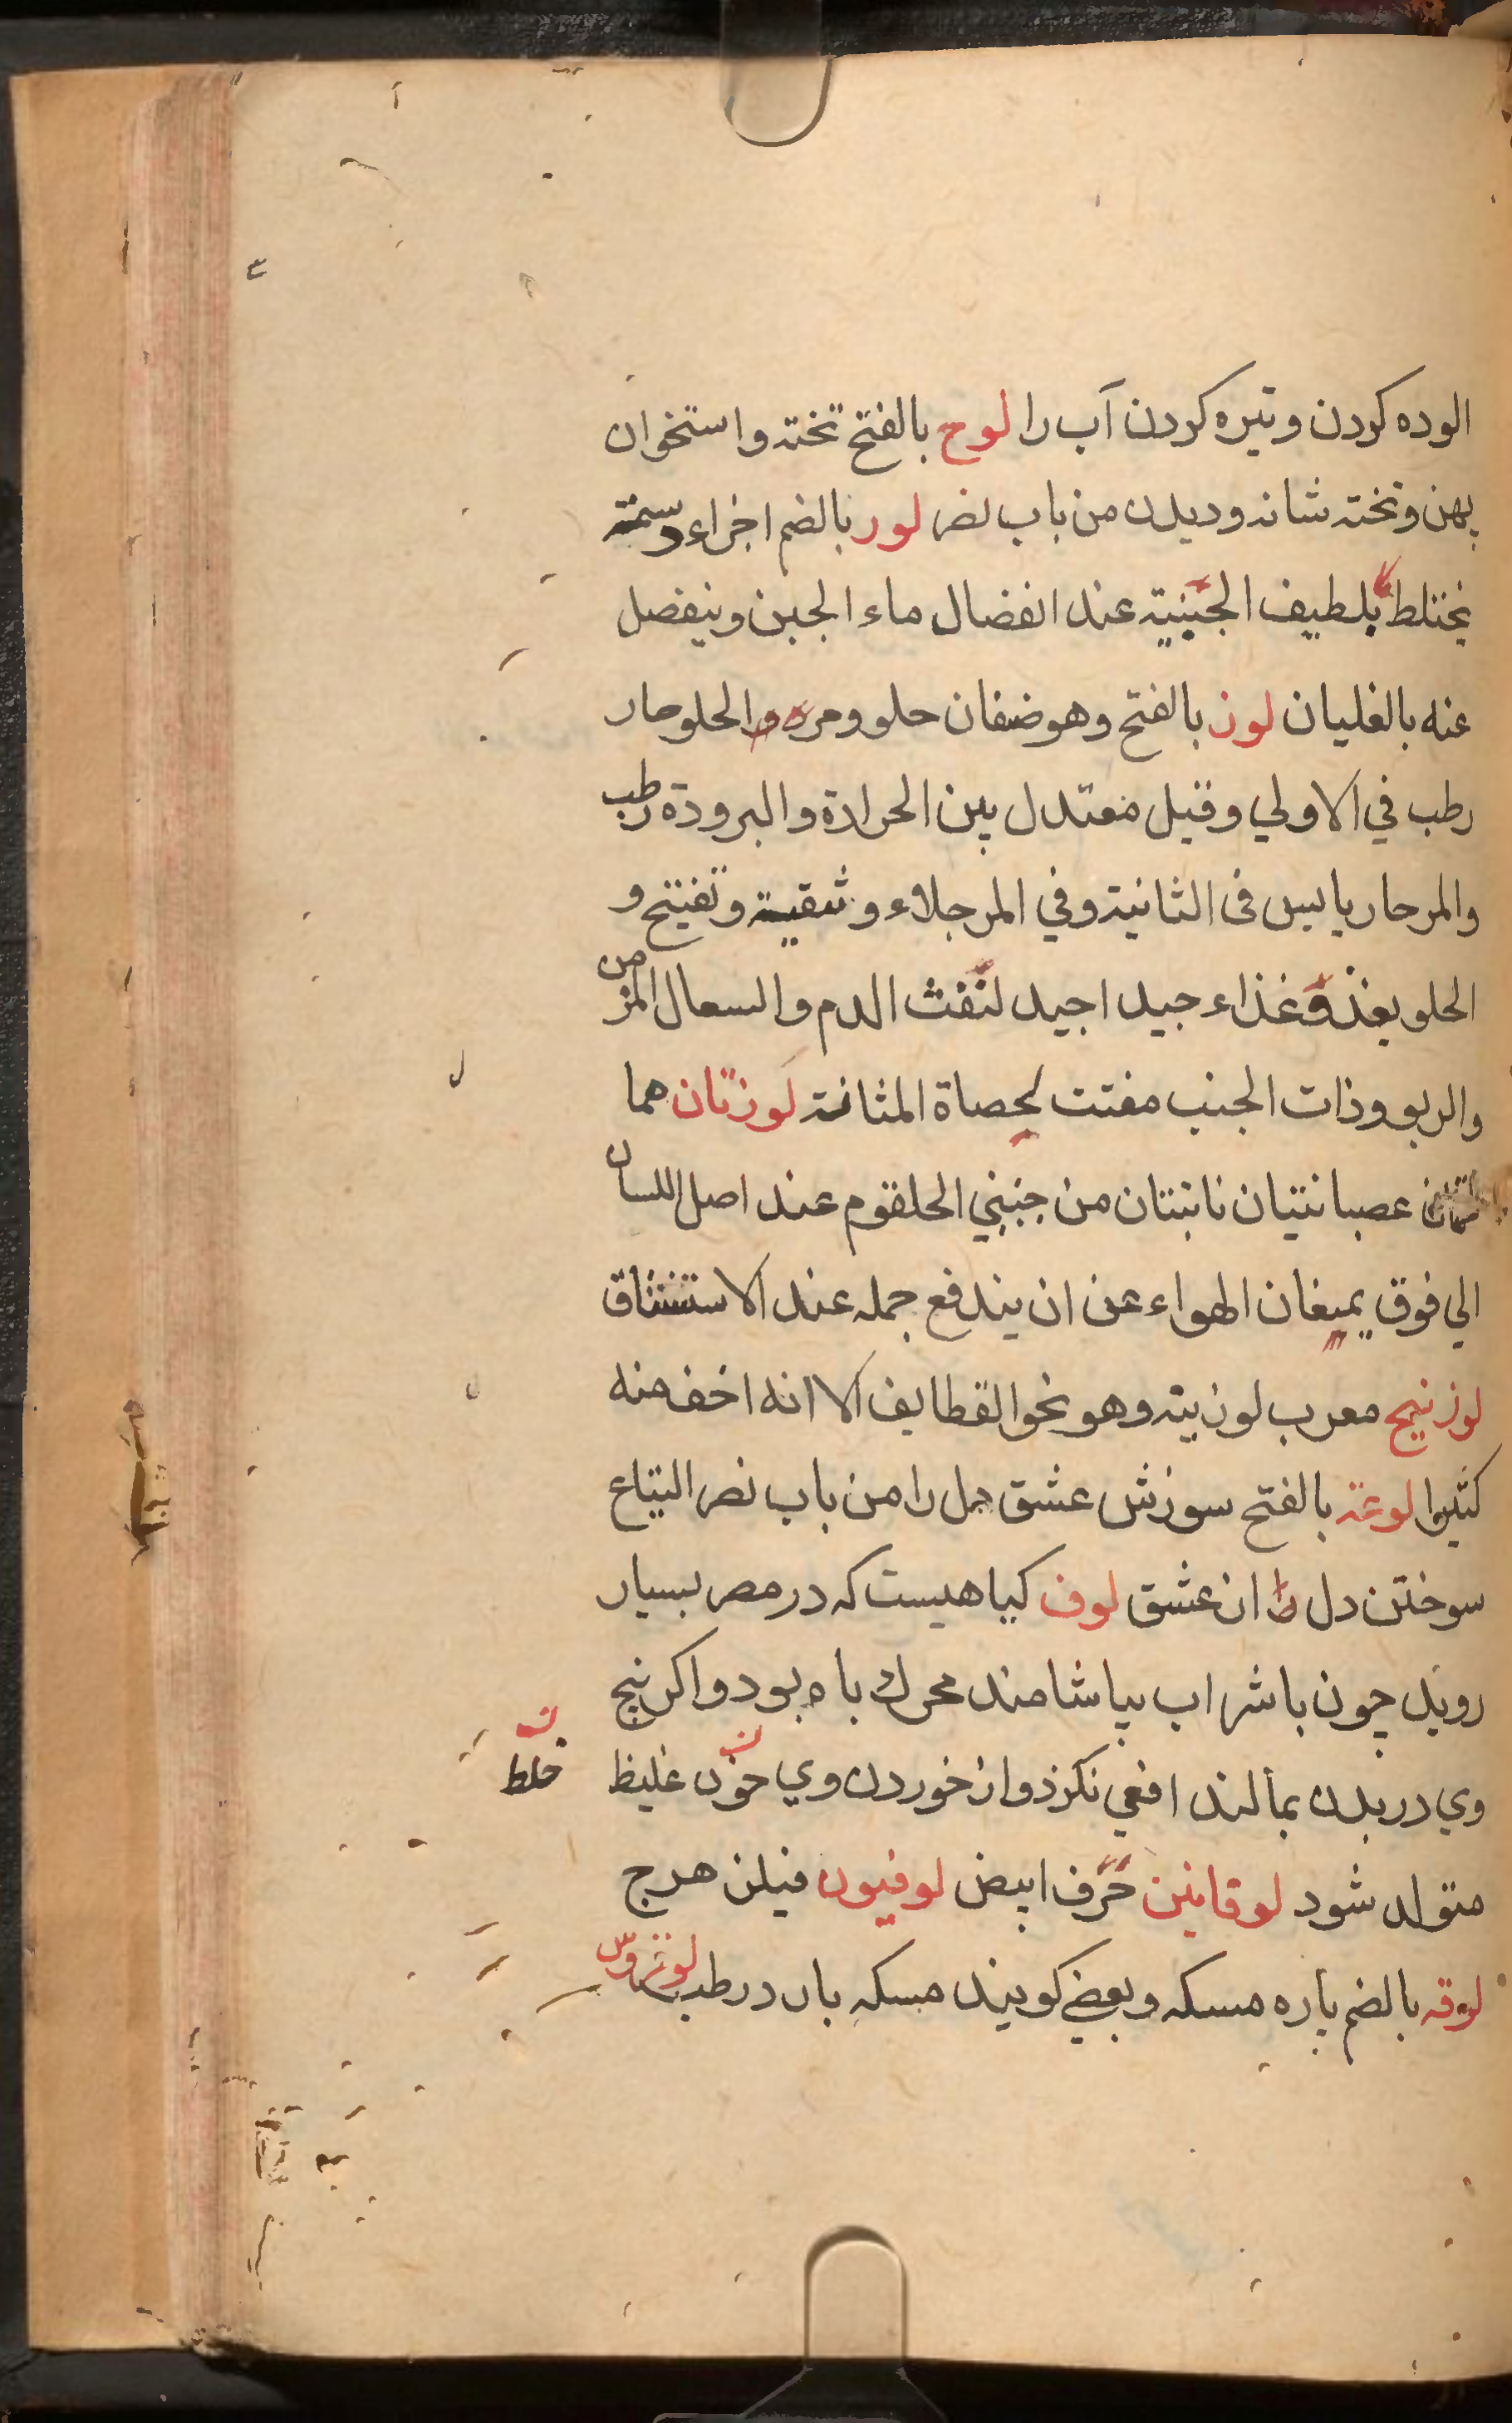 الوده كردن وتيره كردن آب را لوح بالفتح تخته واستخوان
پهن وتخته شانه وديدن من باب نصر لور بالضم اجزاء دسمة
يختلط بلطيف الجبنية عند انفصال ماء الجبن وينفصل
عنه بالغليان لوز بالفتح وهو صنفان حلو ومر والحلو حار
رطب في الاولي وقيل معتدل بين الحرارة والبرودة رطب
والمر حار يابس في الثانية وفي المر جلاء وتنقية وتفتيح و
الحلو يغذو غذاء جيدا جيد لنفث الدم والسعال المزمن
والربو وذات الجنب مفتت لحصاة المثانة لوزتان هما
عصبانيتان نابتتان من جنبي الحلقوم عند اصل اللسان
الي فوق يمنعان الهواء عن ان يندفع جمله عند الاستنشاق
لوزنيج معرب لوزينة وهو نحو القطايف الا انه اخف منه
كثيرا لوعة بالفتح سوزش عشق دل را من باب نصر التياع
سوختن دل از عشق لوف كياهيست كه در مصر بسيار
رويد چون با شراب بياشامند محرك باه بود واكر بيخ
وي در بدن بمالند افعي نكزد واز خوردن وي خون غليظ
خلط
متولد شود لوقاينن حرف ابيض لوفيون فيلن هرج
لوقه بالضم پاره مسكه وبعضي كويند مسكه بان در رطب